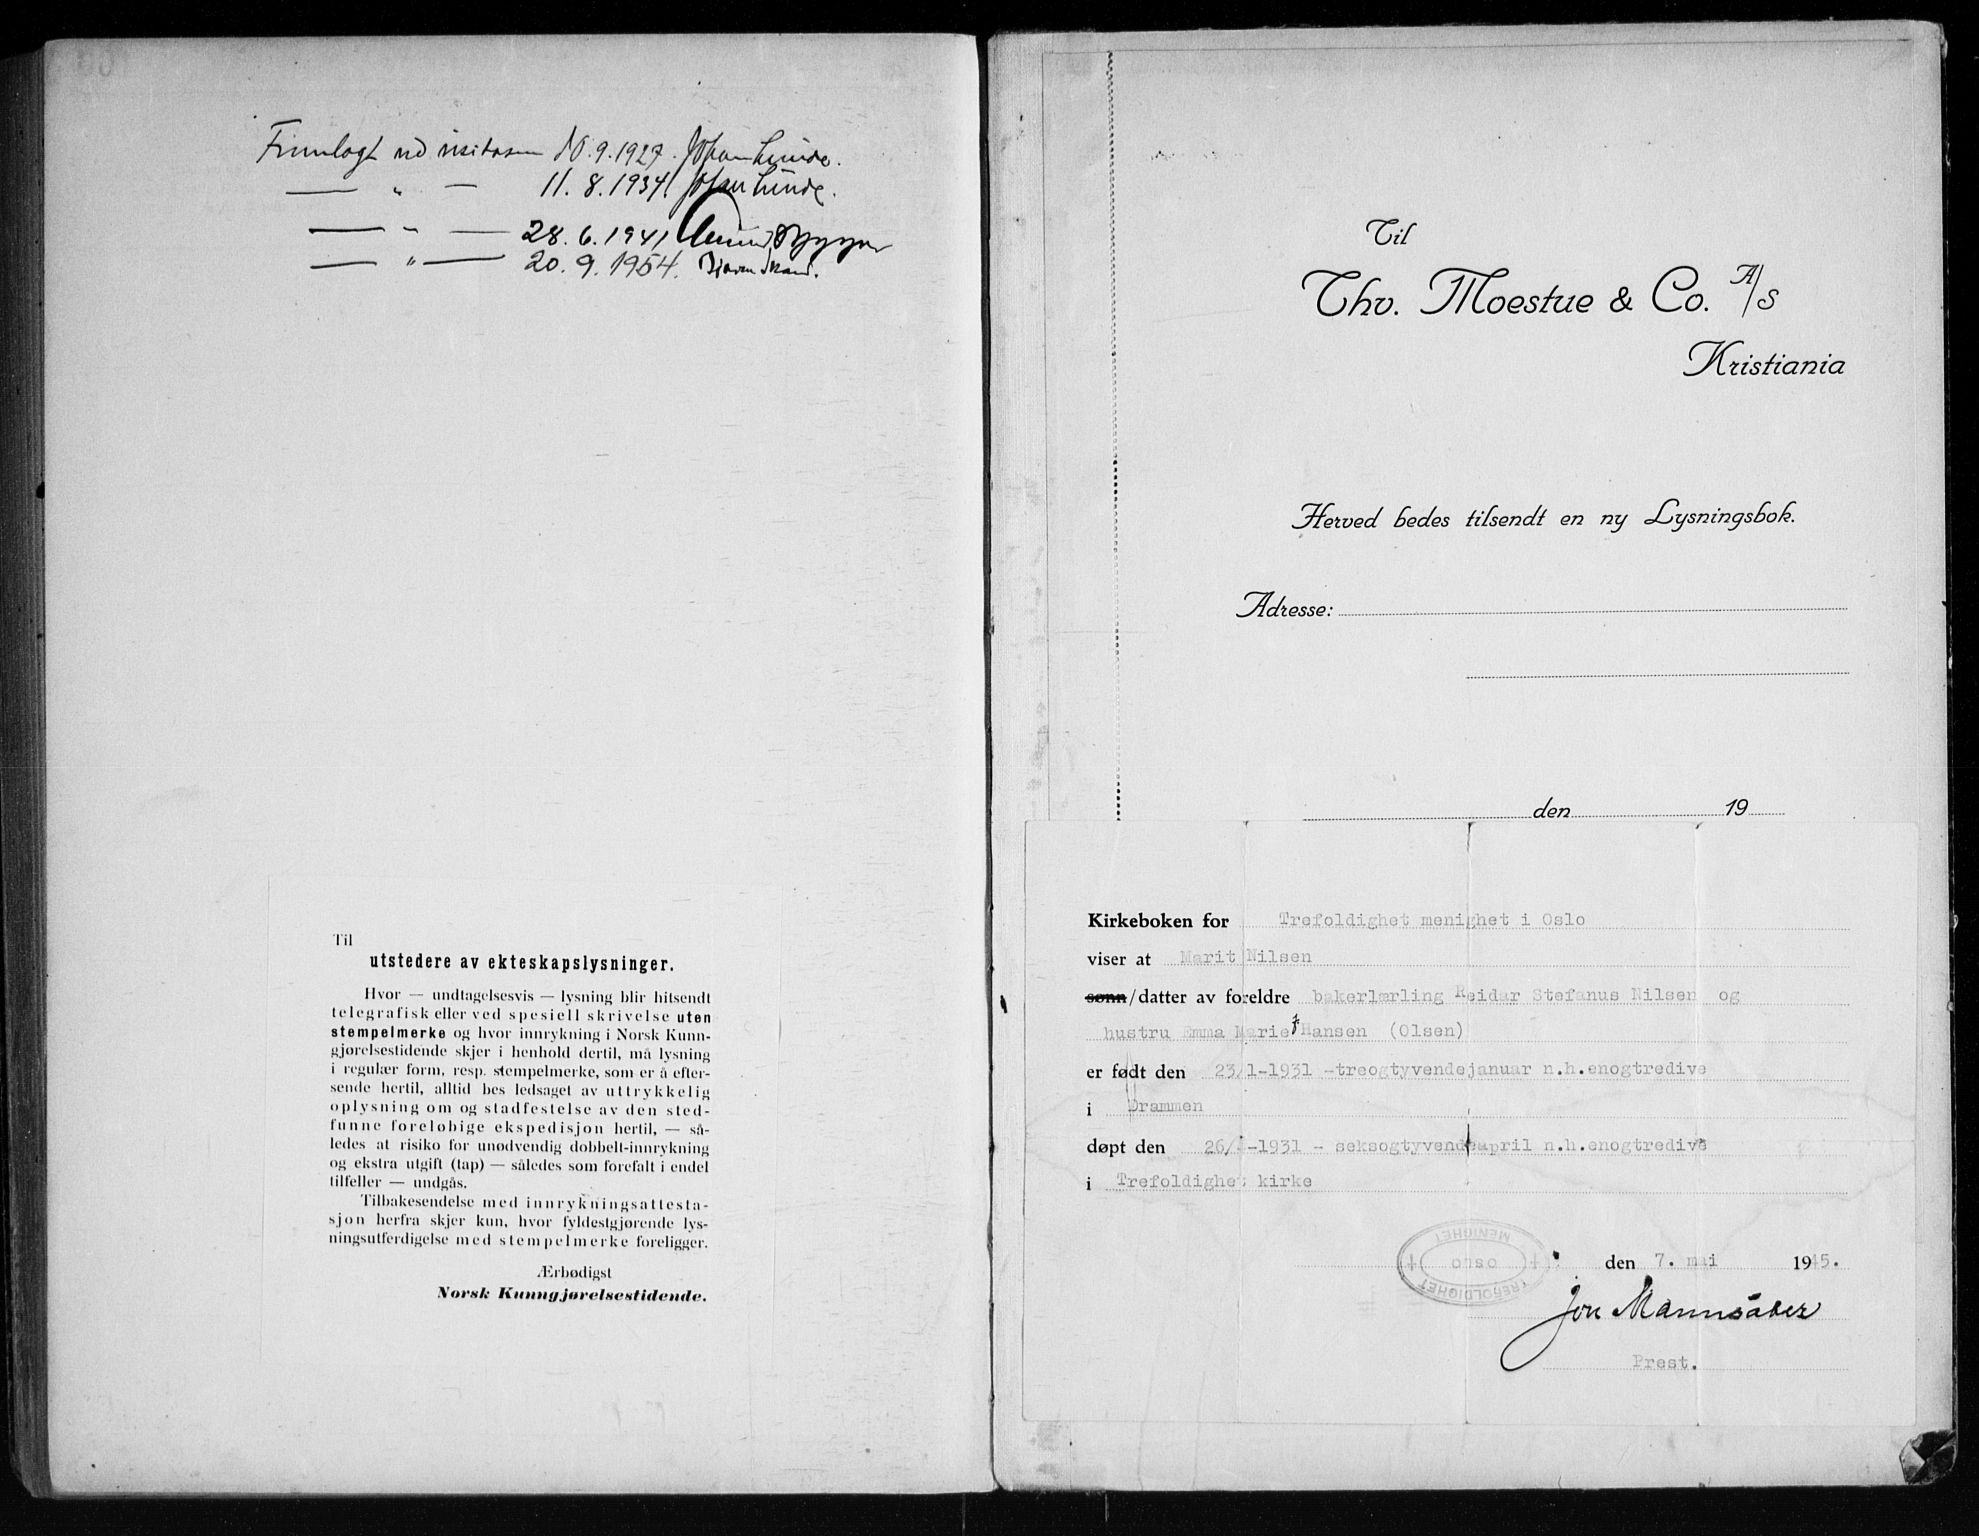 Fremlagt ved visitasen 10.9.1927. Johan Lunde.
— " — 11. 8. 1934. Johan Lunde.
— " — 28. 6. 1941
— " — 20. 9. 1954.
Til
utstedere av ekteskapslysninger.
Hvor — undtagelsesvis — lysning blir hitsendt
telegrafisk eller ved spesiell skrivelse uten
stempelmerke og hvor innrykning i Norsk Kunn-
gjørelsestidende skjer i henhold dertil, må lysning
i regulær form, resp. stempelmerke, som er å efter-
sende hertil, alltid bes ledsaget av uttrykkelig
oplysning om og stadfestelse av den sted-
funne foreløbige ekspedisjon hertil, — så-
ledes at risiko for unødvendig dobbelt-innrykning
og ekstra utgift (tap) — således som forefalt i endel
tilfeller — undgås.
Tilbakesendelse med innrykningsattesta-
sjon herfra skjer kun, hvor fyldestgjørende lys-
ningsutferdigelse med stempelmerke foreligger.
Ærbødigst
Norsk Kunngjørelsestidende.
Til
Thv. Moestue & Co. A/S
Kristiania
Herved bedes tilsendt en ny Lysningsbok.
Adresse:
den 19
Kirkeboken for Trefoldighet menighet i Oslo
viser at Marit Nilsen
sønn/datter av foreldre bakerlærling Reidar Stefanus Nilsen og
hustru Emma Marie f Hansen (Olsen)
er født den 23/1-1931 -treogtyvendejanuar n.h.enogtredive
i Drammen
døpt den 26/4-1931 - seksogtyvendeapril n.h.enogtredive
i Trefoldighet kirke
TREFOLDIGHET MENIGHET OSLO
den 7. mai 1945.
Jon Mannsåker
Prest.